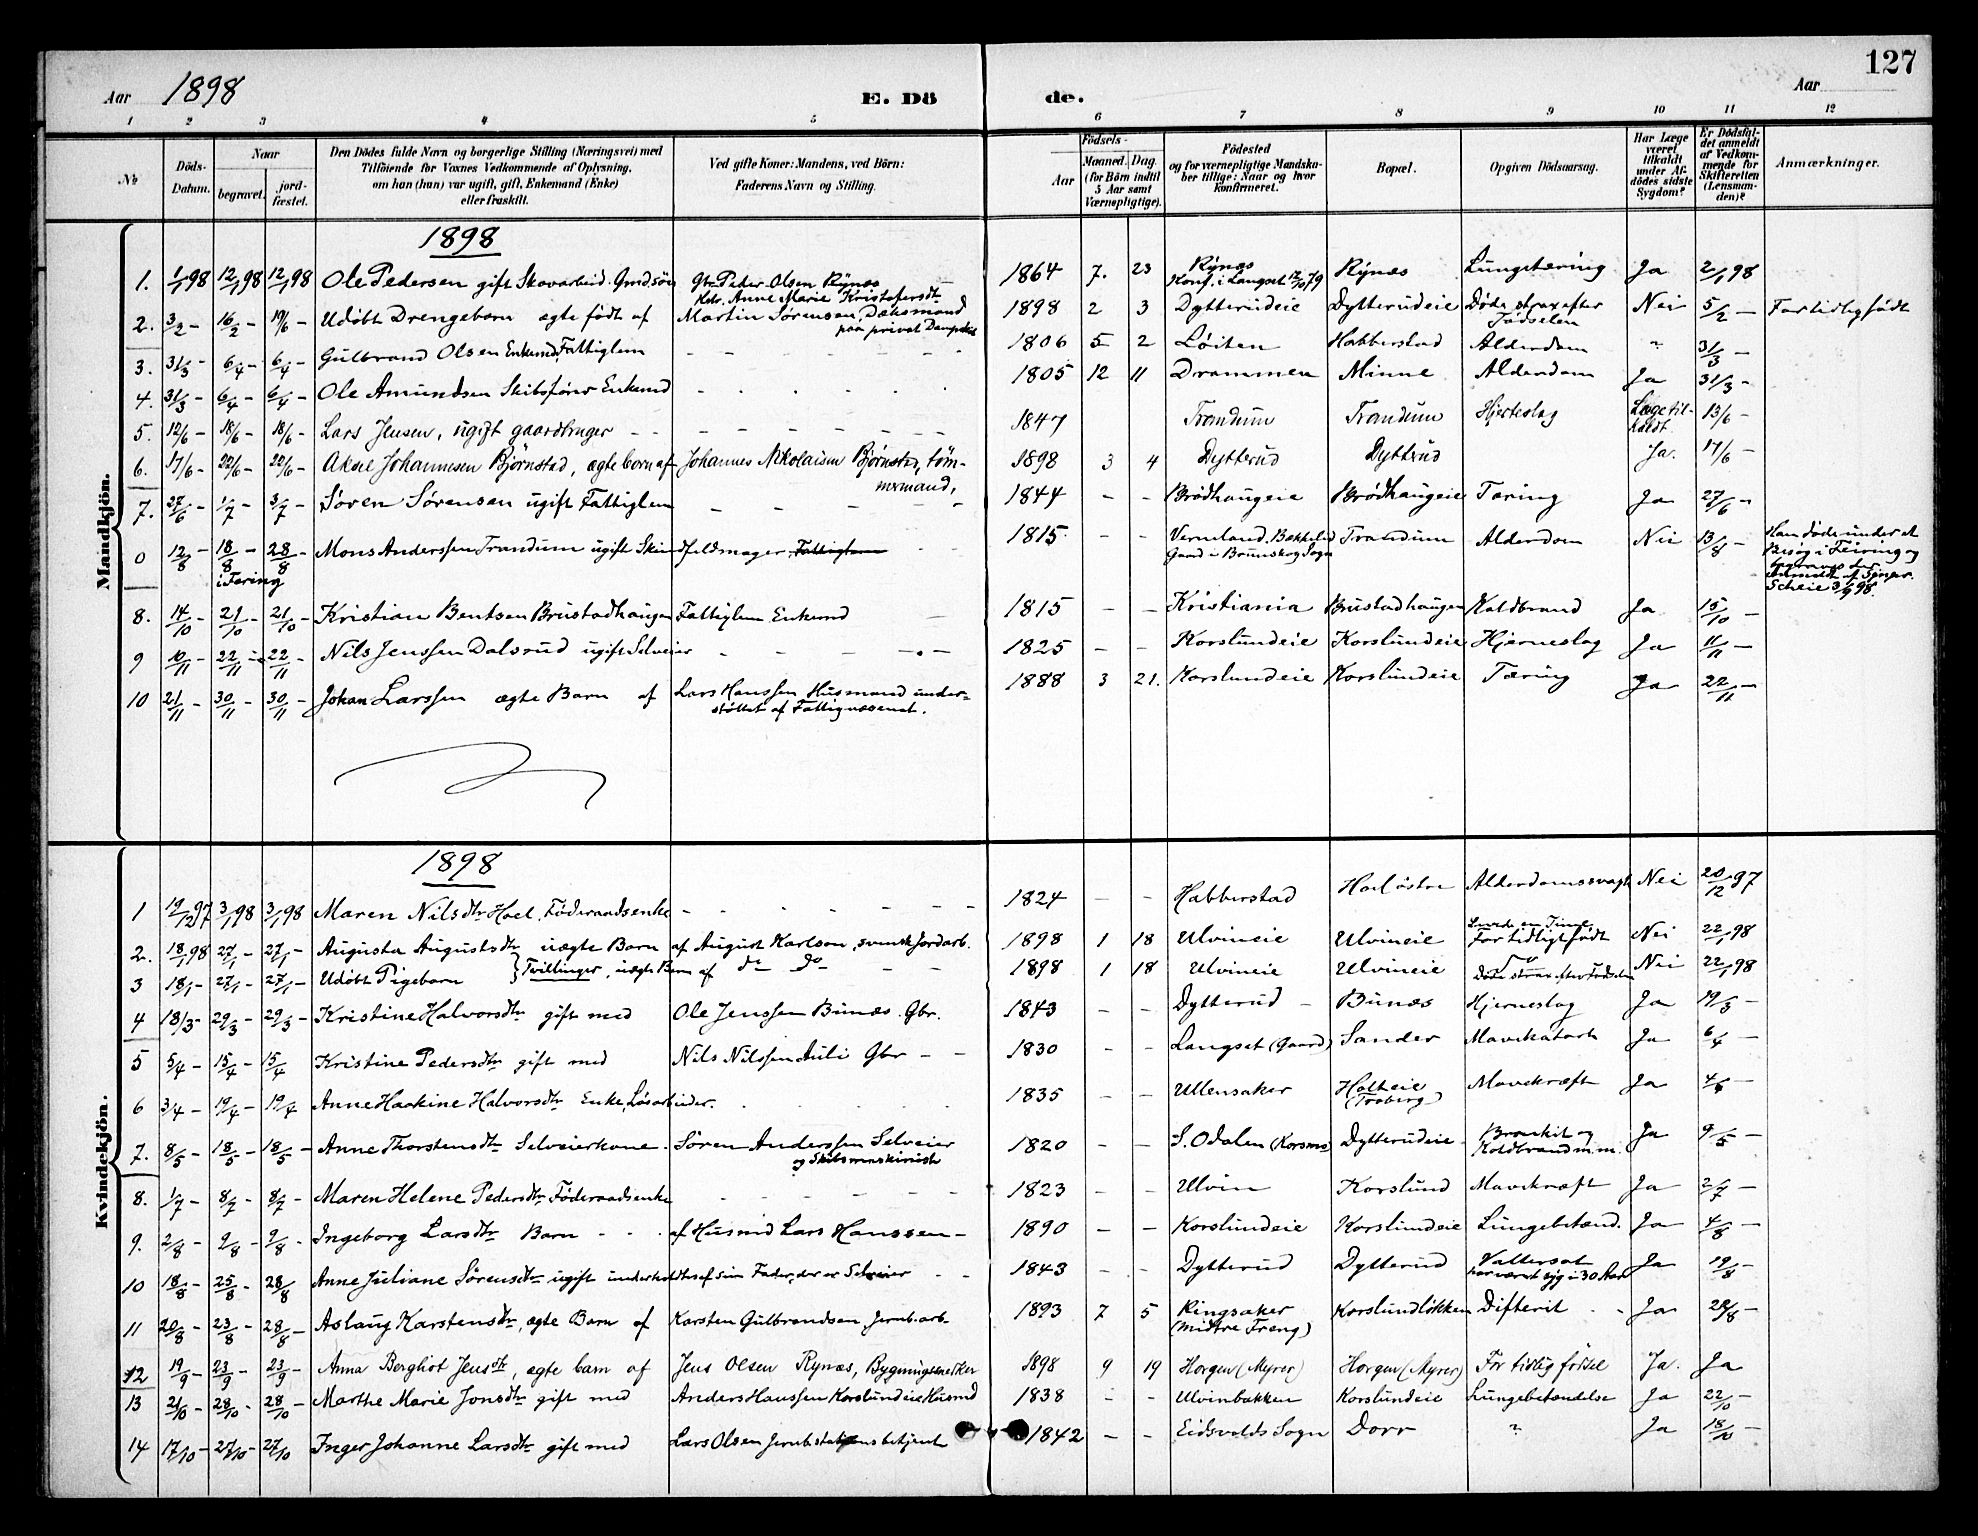 127
Aar 1898 E. Dö de. Aar
1 2 3 4 5 6 7 8 9 10 11 12
No. Döds-Datum. Naar begravet. jordfæstet. Den Dödes fulde Navn og borgerlige Stilling (Næringsvei) med Tilföiende for Voxnes Vedkommende af Oplysning, om han (hun) var ugift, gift, Enkemand (Enke) eller fraskilt. Ved gifte Koner: Mandens, ved Börn: Faderens Navn og Stilling. Födsels- Aar Maaned. Dag. (for Börn indtil 5 Aar samt Værnepligtige). Födested og for værnepligtige Mandskaber tillige: Naar og hvor konfirmeret. Bopæl. Opgiven Dödsaarsag. Har Læge været tilkaldt under Afdödes sidste Sygdom? Er Dödsfaldet anmeldt af Vedkommende for Skifteretten (Lensmanden)? Anmærkninger.
Mandkjön.
1898
1. 1/1 98 12/1 98 12/1 98 Ole Pedersen gift Skovarbeid. Gmdsön Gbr Peder Olsen Rynæs 1864 7. 23 Rynæs Rynæs Lungetæring Ja 2/1 98
Kdr. Anne Marie Kristofersdtr Konf. i Langset 12/10 79
2. 3/2 – 16/2 – 19/6 – Udøbt Drengebarn ægte født af Martin Sørensen, Dæksmand 1898 2 3 Dytterudeie Dytterudeie Døde strax efter Nei 5/2 – For tidlig født
paa privat Dampskib Fødselen
3. 31/3 – 6/4 – 6/4 – Gulbrand Olsen Enkemd, Fattiglem – – 1806 5 2 Løiten Habberstad Alderdom " 31/3 –
4. 31/3 – 6/4 – 6/4 – Ole Amundsen Skibsfører Enkemd 1805 12 11 Drammen Minne Alderdom Ja 31/3 –
5. 12/6 – 18/6 – 18/6 – Lars Jensen, ugift gaardbruger – – 1847 Trandum Trandum Hjerteslag Læge til- 13/6 –
kaldt.
6. 17/6 – 22/6 – 22/6 – Aksel Johannesen Bjørnstad, ægte barn af Johannes Nikolaisen Bjørnstad, tøm- 1898 3 4 Dytterud Dytterud Ja. 17/6 –
mermand,
7. 27/6 – 1/7 – 3/7 – Søren Sørensen ugift Fattiglem – – 1844 – – Brødhaugeie Brødhaugeie Tæring Ja 27/6 –
0 12/8 – 18/8 – 28/8 – Mons Anderssen Trandum ugift Skindfeldmager, Fattiglem 1815 – – Vermland. Trandum Alderdom Nei 13/8 – Han døde under et
i Færing Gaard i Brunskog Sogn Besøg i Feiring og
begraves der
Scheie 3/9 98.
8. 14/10 – 21/10 – 21/10 – Kristian Bentsen Brustadhaugen Fattiglem Enkemd 1815 – – Kristiania Brustadhaugen Koldbrand Ja 15/10 –
9 10/11 – 22/11 – 22/11 – Nils Jenssen Dalsrud ugift Selveier – – 1825 – – Korslundeie Korslundeie Hjerneslag Ja 11/11 –
10 21/11 – 30/11 – 30/11 – Johan Larssen ægte Barn af Lars Hanssen Husmand under- 1888 3 21. Korslundeie Korslundeie Tæring Ja 22/11 –
støttet af Fattigvæsenet.
Kvindekjön.
1898
1 19/12 97 3/1 98 3/1 98 Maren Nilsdtr Hoel, Føderaadsenke – – 1824 – – Habberstad Hoel østre Alderdomssvagh Nei 20/12 97
2. 18/1 98 27/1 – 27/1 – Augusta Augustsdtr uægte Barn af August Karlson, svensk Jordarb. 1898 1 18 Ulvineie Ulvineie Levede en Time For tidligt født Nei 22/1 98
3 18/1 – 27/1 – 27/1 – Udøbt Pigebarn } Tvillinger, uægte Barn af do do – – 1898 1 18 Ulvineie Ulvineie Døde strax efter Fødselen Nei 22/1 98
4 18/3 – 29/3 – 29/3 – Kristine Halvorsdtr gift med Ole Jenssen Bunæs. Gbr. 1843 – – Dytterud – Bunæs Hjerneslag Ja 19/3 –
5 5/4 – 15/4 – 15/4 Kristine Pedersdtr gift med Nils Nilssen Auli Gbr – – 1830 – – Langset (Gaard) Sander Mavekatarh Ja 6/4 –
6 3/4 – 19/4 – 19/4 Anne Haakine Halvorsdtr Enke, Løsarbeider. 1835 – – Ullensaker Holteie Mavekræft Ja 4/4 –
(Troberg)
7. 8/5 – 18/5 – 18/5 – Anne Thorstensdtr Selveierkone. Søren Anderssen Selveier 1820 – – S. Odalen (Korsmo) Dytterudeie Bronkit og Ja 9/5 –
og Skibsmaskinist Koldbrand m.m.
8. 1/7 – 8/7 – 8/7 – Maren Helene Pedersdtr Føderaadsenke – – 1823 – – Ulvin Korslund Mavekræft Ja 2/7 –
9. 2/8 – 9/8 – 9/8 – Ingeborg Larsdtr Barn – – af Husmd Lars Hanssen – 1890 – – Korslundeie Korslundeie Lungebetænd. Ja 4/8 –
10 18/8 – 25/8 – 28/8 Anne Juliane Sørensdtr ugift underholdtes af sin Fader, der er Selveier – – 1843 – – Dytterud Dytterud Vattersot Ja 19/8 –
har været syg i 30 Aar
11 20/8 – 23/8 – 28/8 – Aslaug Karstensdtr, ægte Barn af Karsten Gulbrandsen, Jernb.arb. 1893 7 5 Ringsaker Korslundløkken Difterit – Ja 22/8 –
(Midtre Fræng)
12 19/9 – 23/9 – 23/9 – Anna Bergliot Jensdtr, ægte barn af Jens Olsen Rynæs, Bygningssnekker 1898 9 19 Horgen (Myrer) Horgen (Myrer) For tidlig fødsel Ja. Ja
13 21/10 – 28/10 – 28/10 – Marthe Marie Jonsdtr gift med Anders Hanssen Korslundeie Husmd 1838 – – Ulvinbakken Korslundeie Lungebetændelse Ja 22/10 –
14 17/10 – 27/10 – 27/10 Inger Johanne Larsdtr gift med Lars Olsen Jernb.stationsbetjent 1842 – – Eidsvolds Sogn Dorr " Ja 18/10 –